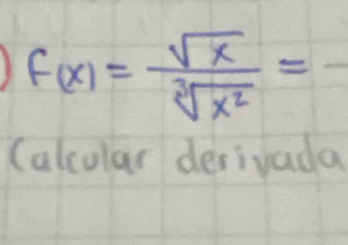 ) f(x) = √x / ∛x² = –
Calcular derivada